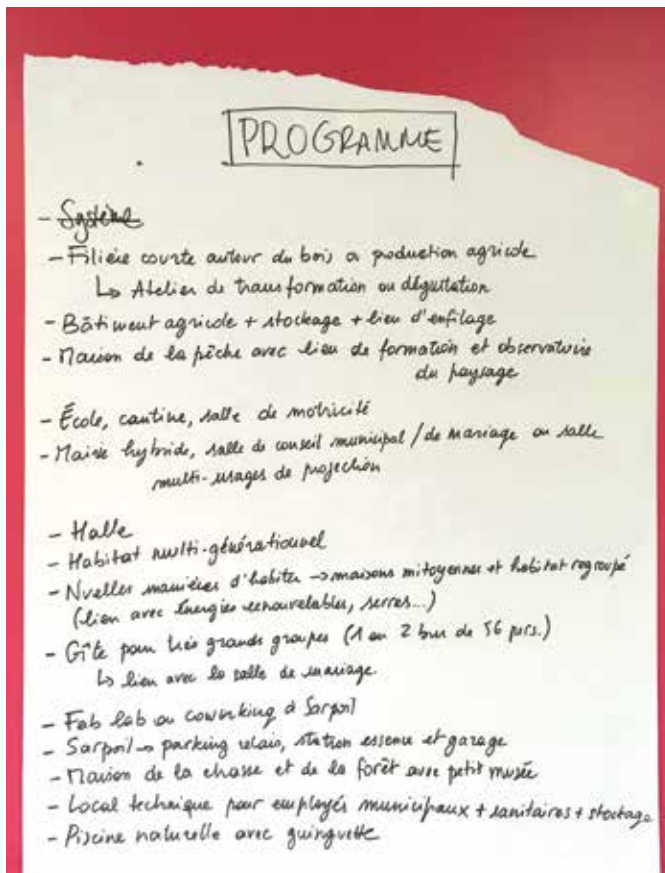 PROGRAMME
- Système
- Filière courte autour du bois ou production agricole
↳ Atelier de transformation ou dégustation
- Bâtiment agricole + stockage + lieu d'enfilage
- Maison de la pêche avec lieu de formation et observatoire
du paysage
- École, cantine, salle de motricité
- Mairie hybride, salle de conseil municipal / de mariage ou salle
multi-usages de projection
- Halle
- Habitat multi-générationnel
- Nvelles manières d'habiter → maisons mitoyennes et habitat regroupé
(lien avec énergies renouvelables, serres...)
- Gîte pour très grands groupes (1 ou 2 bus de 56 pers.)
↳ lien avec la salle de mariage
- Fab lab ou coworking à Sarpoil
- Sarpoil → parking relais, station essence et garage
- Maison de la chasse et de la forêt avec petit musée
- Local technique pour employés municipaux + sanitaires + stockage
- Piscine naturelle avec guinguette